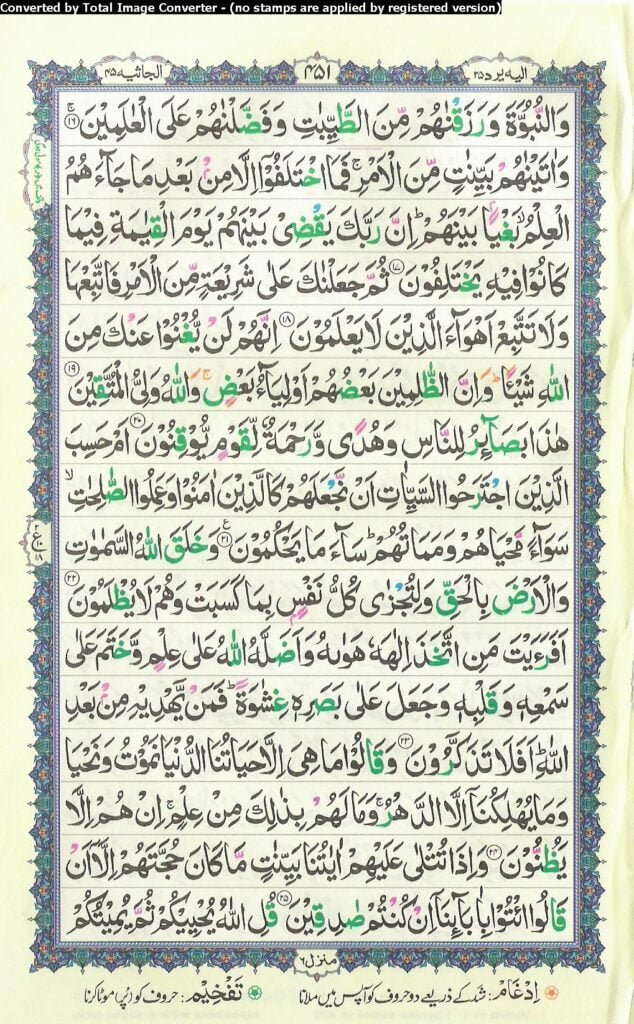 Converted by Total Image Converter - (no stamps are applied by registered version)
الیه یرد ۲۵
۴۵۱
الجاثیة ۴۵
وَالنُّبُوَّةَ وَرَزَقْنٰهُمْ مِّنَ الطَّيِّبٰتِ وَفَضَّلْنٰهُمْ عَلَى الْعٰلَمِيْنَ ۚ‏﴿۱۶﴾
وَاٰتَيْنٰهُمْ بَيِّنٰتٍ مِّنَ الْاَمْرِ ۚ فَمَا اخْتَلَفُوْۤا اِلَّا مِنْۢ بَعْدِ مَا جَآءَهُمُ
الْعِلْمُ ۙ بَغْيًاۢ بَيْنَهُمْ ؕ اِنَّ رَبَّكَ يَقْضِىْ بَيْنَهُمْ يَوْمَ الْقِيٰمَةِ فِيْمَا
كَانُوْا فِيْهِ يَخْتَلِفُوْنَ ﴿۱۷﴾ ثُمَّ جَعَلْنٰكَ عَلٰى شَرِيْعَةٍ مِّنَ الْاَمْرِ فَاتَّبِعْهَا
وَلَا تَتَّبِعْ اَهْوَآءَ الَّذِيْنَ لَا يَعْلَمُوْنَ ﴿۱۸﴾ اِنَّهُمْ لَنْ يُّغْنُوْا عَنْكَ مِنَ
اللّٰهِ شَيْـًٔا ؕ وَاِنَّ الظّٰلِمِيْنَ بَعْضُهُمْ اَوْلِيَآءُ بَعْضٍ ۚ وَاللّٰهُ وَلِىُّ الْمُتَّقِيْنَ ﴿۱۹﴾
هٰذَا بَصَآئِرُ لِلنَّاسِ وَهُدًى وَّرَحْمَةٌ لِّقَوْمٍ يُّوْقِنُوْنَ ﴿۲۰﴾ اَمْ حَسِبَ
الَّذِيْنَ اجْتَرَحُوا السَّيِّاٰتِ اَنْ نَّجْعَلَهُمْ كَالَّذِيْنَ اٰمَنُوْا وَعَمِلُوا الصّٰلِحٰتِ ۙ
سَوَآءً مَّحْيَاهُمْ وَمَمَاتُهُمْ ؕ سَآءَ مَا يَحْكُمُوْنَ ﴿۲۱﴾ وَخَلَقَ اللّٰهُ السَّمٰوٰتِ
وَالْاَرْضَ بِالْحَقِّ وَلِتُجْزٰى كُلُّ نَفْسٍۢ بِمَا كَسَبَتْ وَهُمْ لَا يُظْلَمُوْنَ ﴿۲۲﴾
اَفَرَءَيْتَ مَنِ اتَّخَذَ اِلٰهَهٗ هَوٰىهُ وَاَضَلَّهُ اللّٰهُ عَلٰى عِلْمٍ وَّخَتَمَ عَلٰى
سَمْعِهٖ وَقَلْبِهٖ وَجَعَلَ عَلٰى بَصَرِهٖ غِشٰوَةً ؕ فَمَنْ يَّهْدِيْهِ مِنْۢ بَعْدِ
اللّٰهِ ؕ اَفَلَا تَذَكَّرُوْنَ ﴿۲۳﴾ وَقَالُوْا مَا هِىَ اِلَّا حَيَاتُنَا الدُّنْيَا نَمُوْتُ وَنَحْيَا
وَمَا يُهْلِكُنَاۤ اِلَّا الدَّهْرُ ۚ وَمَا لَهُمْ بِذٰلِكَ مِنْ عِلْمٍ ۚ اِنْ هُمْ اِلَّا
يَظُنُّوْنَ ﴿۲۴﴾ وَاِذَا تُتْلٰى عَلَيْهِمْ اٰيٰتُنَا بَيِّنٰتٍ مَّا كَانَ حُجَّتَهُمْ اِلَّاۤ اَنْ
قَالُوا ائْتُوْا بِاٰبَآئِنَاۤ اِنْ كُنْتُمْ صٰدِقِيْنَ ﴿۲۵﴾ قُلِ اللّٰهُ يُحْيِيْكُمْ ثُمَّ يُمِيْتُكُمْ
منزل ۶
اِدْغَام: شد کے ذریعے دو حروف کو آپس میں ملانا
تَفْخِیْم: حروف کو (پُر) موٹا کرنا